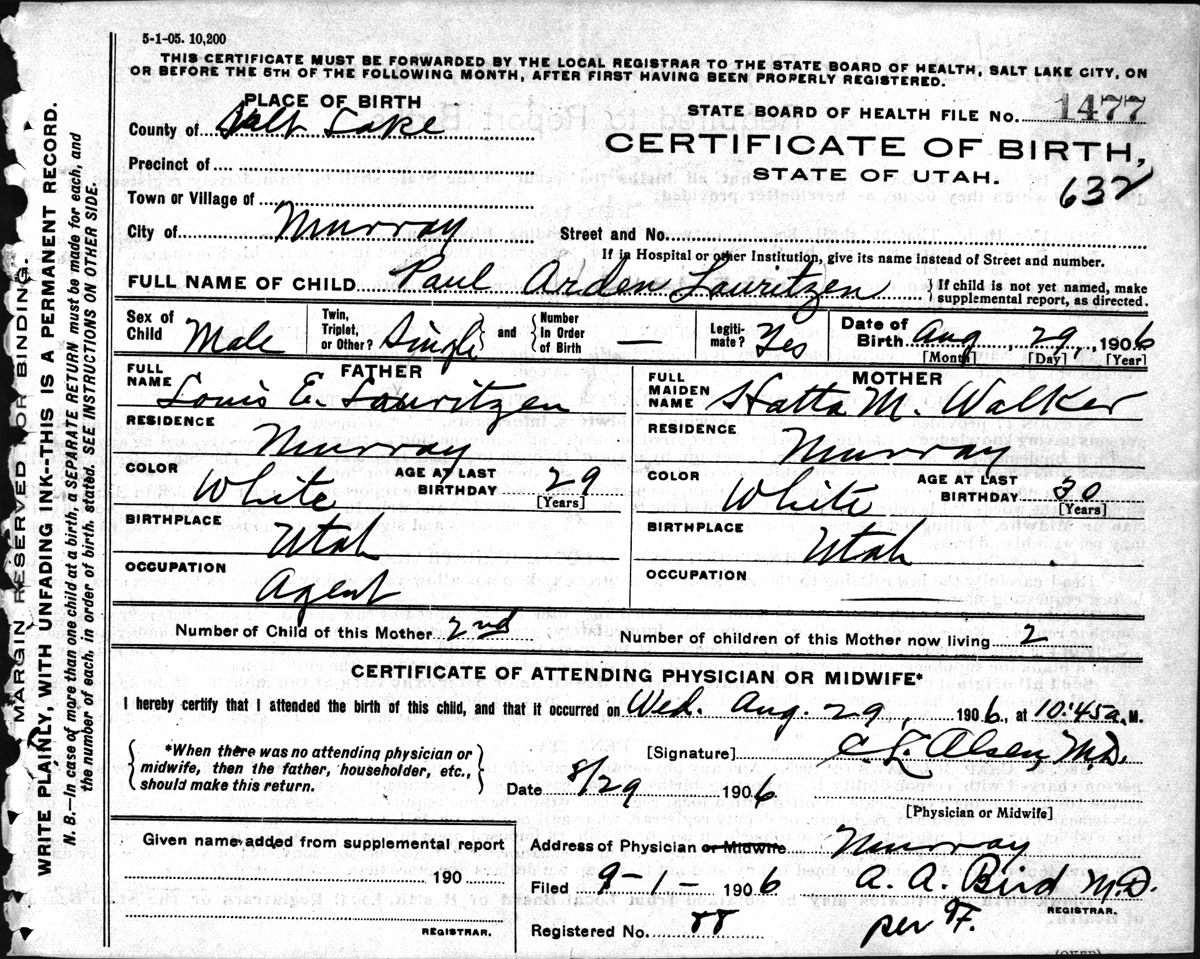 5-1-05. 10,200
THIS CERTIFICATE MUST BE FORWARDED BY THE LOCAL REGISTRAR TO THE STATE BOARD OF HEALTH, SALT LAKE CITY, ON
OR BEFORE THE 5TH OF THE FOLLOWING MONTH, AFTER FIRST HAVING BEEN PROPERLY REGISTERED.
PLACE OF BIRTH
County of Salt Lake
Precinct of
Town or Village of
City of Murray
STATE BOARD OF HEALTH FILE No. 1477
CERTIFICATE OF BIRTH,
STATE OF UTAH.
632
Street and No.
If in Hospital or other Institution, give its name instead of Street and number.
FULL NAME OF CHILD Paul Arden Lauritzen
If child is not yet named, make
supplemental report, as directed.
Sex of
Child Male
Twin,
Triplet,
or Other? Single
and
Number
in Order
of Birth —
Legiti-
mate? Yes
Date of
Birth Aug, 29, 1906
[Month] [Day] [Year]
FATHER
FULL
NAME Louis E. Lauritzen
RESIDENCE
Murray
COLOR White
AGE AT LAST
BIRTHDAY 29
[Years]
BIRTHPLACE
Utah
OCCUPATION
Agent
MOTHER
FULL
MAIDEN
NAME Hatta M. Walker
RESIDENCE
Murray
COLOR White
AGE AT LAST
BIRTHDAY 30
[Years]
BIRTHPLACE
Utah
OCCUPATION
Number of Child of this Mother 2nd
Number of children of this Mother now living 2
CERTIFICATE OF ATTENDING PHYSICIAN OR MIDWIFE*
I hereby certify that I attended the birth of this child, and that it occurred on Wed. Aug. 29, 1906, at 10:45 a.M.
*When there was no attending physician or
midwife, then the father, householder, etc.,
should make this return.
[Signature] C. L. Olsen M.D.
Date 8/29 1906
[Physician or Midwife]
Given name added from supplemental report
190
REGISTRAR.
Address of Physician or Midwife Murray
Filed 9-1- 1906 A. A. Bird M.D.
REGISTRAR.
Registered No. 88 per F.
MARGIN RESERVED FOR BINDING.
WRITE PLAINLY, WITH UNFADING INK--THIS IS A PERMANENT RECORD.
N. B.—In case of more than one child at a birth, a SEPARATE RETURN must be made for each, and
the number of each, in order of birth, stated. SEE INSTRUCTIONS ON OTHER SIDE.